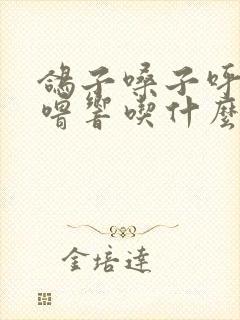 鴿子嗓子呼
嚕響喫什麼
金培達